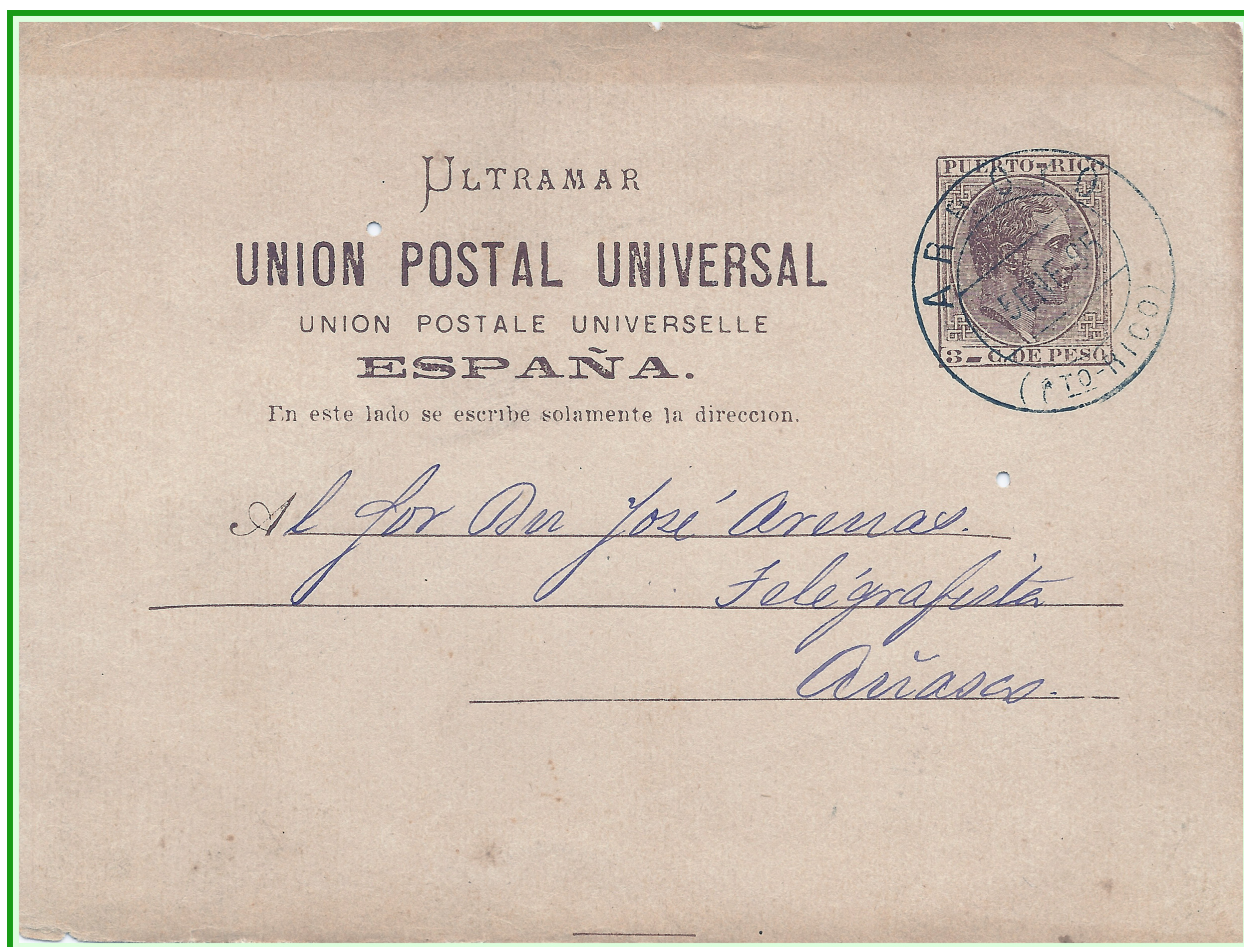 ULTRAMAR
UNION POSTAL UNIVERSAL
UNION POSTALE UNIVERSELLE
ESPAÑA.
En este lado se escribe solamente la direccion.
PUERTO-RICO
3-C. DE PESO
ARROYO
(PTO-RICO)
Al Sor Dn José Arenas.
Telégrafista
Añasco.